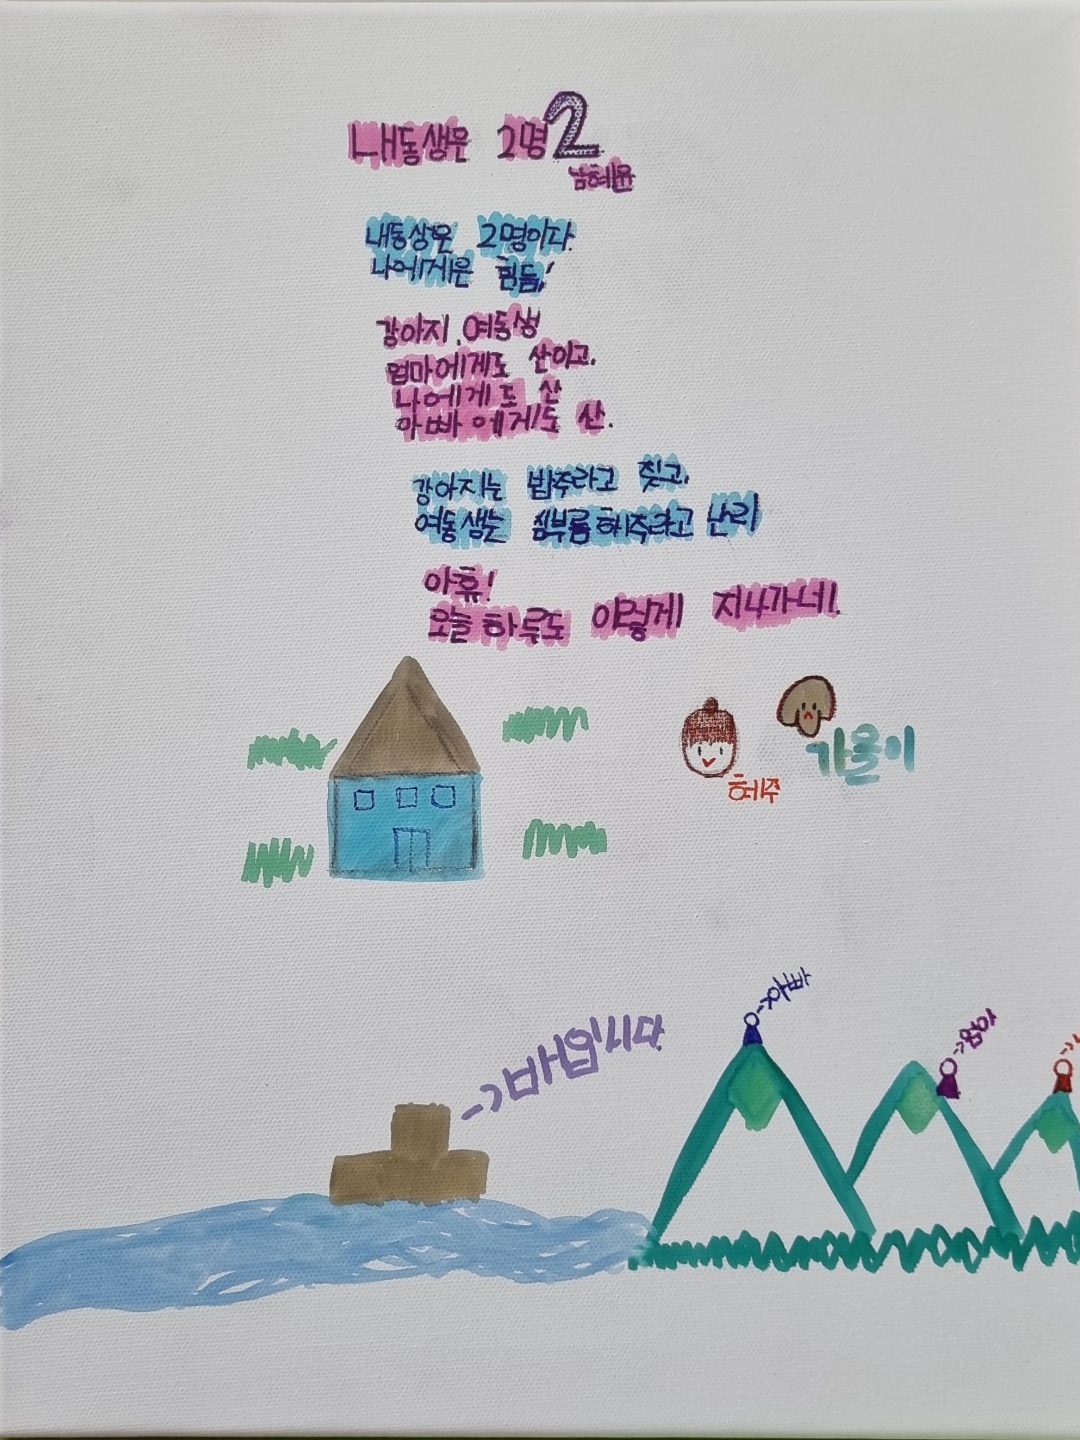 내동생은 2명 2
남혜윤
내동생은 2명이다.
나에게은 힘듬!
강아지, 여동생
엄마에게도 산이고,
나에게도 산
아빠에게도 산.
강아지는 밥주라고 짖고,
여동생는 심부름해주라고 난리
아휴!
오늘 하루도 이렇게 지나가네!.
혜주
가을이
아빠
엄마
바위입니다